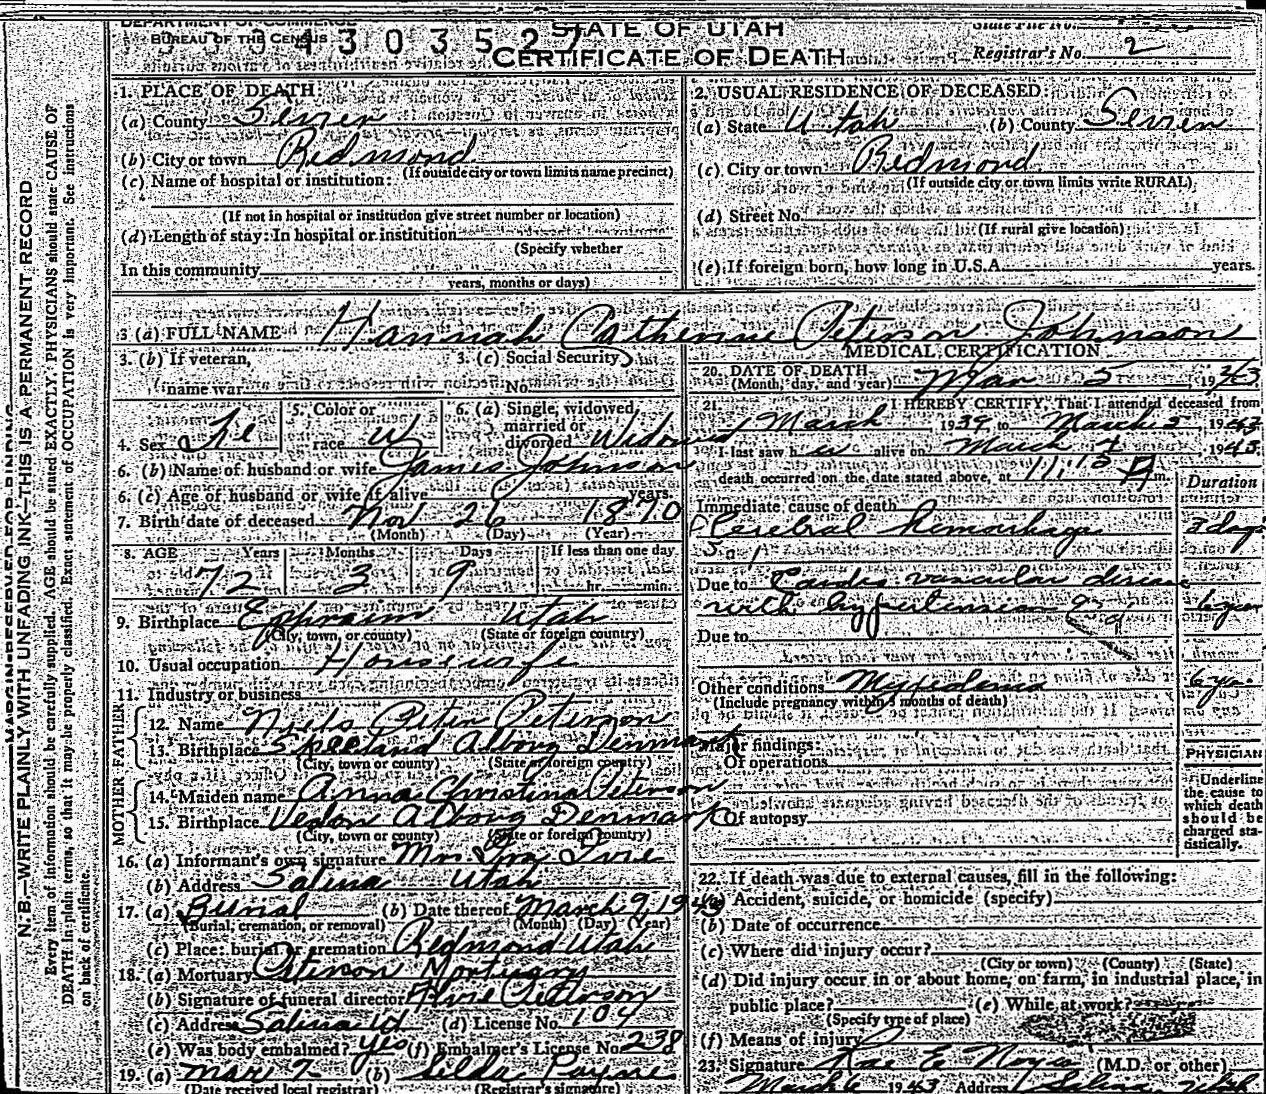 DEPARTMENT OF COMMERCE
BUREAU OF THE CENSUS
43 0 3 5 2 7
STATE OF UTAH
CERTIFICATE OF DEATH
State File No.
Registrar's No. 2
N. B.—WRITE PLAINLY, WITH UNFADING INK—THIS IS A PERMANENT RECORD
MARGIN RESERVED FOR BINDING
Every item of information should be carefully supplied. AGE should be stated EXACTLY. PHYSICIANS should state CAUSE OF
DEATH in plain terms, so that it may be properly classified. Exact statement of OCCUPATION is very important. See instructions
on back of certificate.
1. PLACE OF DEATH:
(a) County Sevier
(b) City or town Redmond
(If outside city or town limits name precinct)
(c) Name of hospital or institution:
(If not in hospital or institution give street number or location)
(d) Length of stay: In hospital or institution
(Specify whether
In this community
years, months or days)
2. USUAL RESIDENCE OF DECEASED
(a) State Utah (b) County Sevier
(c) City or town Redmond
(If outside city or town limits write RURAL)
(d) Street No.
(If rural give location)
(e) If foreign born, how long in U.S.A. years.
3 (a) FULL NAME Hannah Catherine Peterson Johnson
3. (b) If veteran,
name war
3. (c) Social Security
No.
4. Sex Fe
5. Color or
race W
6. (a) Single, widowed,
married or
divorced Widowed
6. (b) Name of husband or wife James Johnson
6. (c) Age of husband or wife if alive years.
7. Birth date of deceased Nov 26 1870
(Month) (Day) (Year)
8. AGE Years Months Days If less than one day
72 3 9 hr. min.
9. Birthplace Ephraim Utah
(City, town, or county) (State or foreign country)
10. Usual occupation Housewife
11. Industry or business
FATHER
12. Name Niels Peter Peterson
13. Birthplace Alborg Denmark
(City, town or county) (State or foreign country)
MOTHER
14. Maiden name Anna Christina Peterson
15. Birthplace Alborg Denmark
(City, town or county) (State or foreign country)
16. (a) Informant's own signature Mrs Ivie
(b) Address Salina Utah
17. (a) Burial (b) Date thereof March 9, 1943
(Burial, cremation, or removal) (Month) (Day) (Year)
(c) Place: burial or cremation Redmond Utah
18. (a) Mortuary Peterson Mortuary
(b) Signature of funeral director Peterson
(c) Address Salina Ut (d) License No. 104
(e) Was body embalmed? yes (f) Embalmer's License No. 238
19. (a) Mar 7 (b) Payne
(Date received local registrar) (Registrar's signature)
MEDICAL CERTIFICATION
20. DATE OF DEATH
(Month, day, and year) Mar 5 1943
21. I HEREBY CERTIFY, That I attended deceased from
March 1939 to March 5, 1943
I last saw her alive on March 1943
death occurred on the date stated above, at 11:15 A m.
Duration
Immediate cause of death
Cerebral hemorrhage
days
Due to Cardio vascular disease
with hypertension 6 years
Due to
Other conditions Myxedema 6 yr.
(Include pregnancy within 3 months of death)
Major findings:
Of operations
Of autopsy
PHYSICIAN
Underline
the cause to
which death
should be
charged sta-
tistically.
22. If death was due to external causes, fill in the following:
(a) Accident, suicide, or homicide (specify)
(b) Date of occurrence
(c) Where did injury occur?
(City or town) (County) (State)
(d) Did injury occur in or about home, on farm, in industrial place, in
public place? (e) While at work?
(Specify type of place)
(f) Means of injury
23. Signature Rae E Noyes (M.D. or other)
March 6 1943 Address Salina, Utah